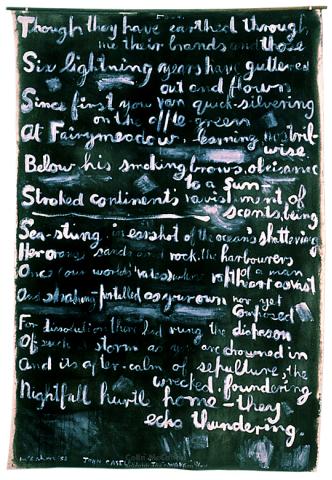 Though they have earthed through
me their brands and those
Six lightning years have guttered
out and flown
Since first you ran quick-silvering
on the apple-green
At Fairymeadow, learning nostril-
wise
Below his smoking brows, obeisance
to a sun-
Stroked continent's ravishment of
scents, being
Sea-stung in earshot of the ocean's shattering
Her orange sands and rock, the harbourers
Once our world's
heart of a man
And shaking-portalled as your own nor yet
composed
For dissolution there had rung the diapason
Of such storm as you are drowned in
And its after-calm of sepulture, the
wrecked foundering
Nightfall hurtle home - they
echo thundering.
JOHN CASELBERG
Colin McCahon